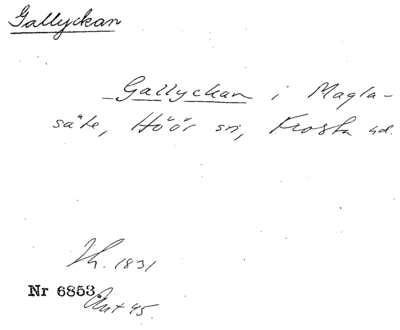 Gallyckan
Gallyckan i Magla-
säte, Höör sn, Frosta hd.
1831
Nr 6853
45.